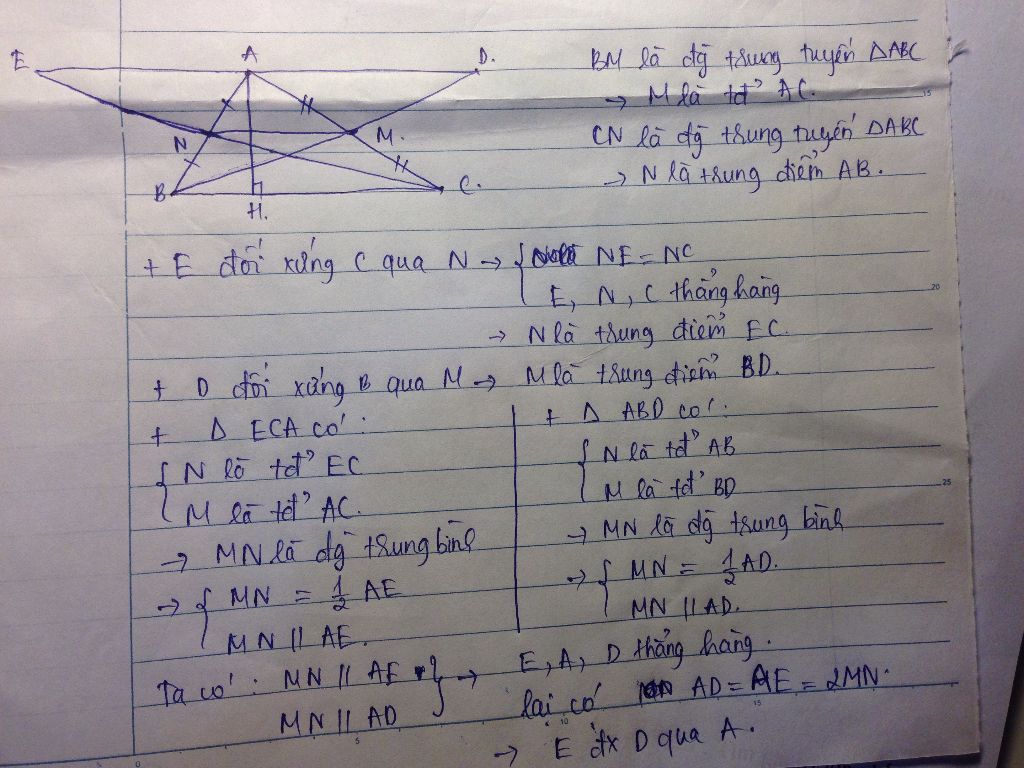 E A D.
N M.
B H. C.
BM là đg̃ trung tuyến ΔABC
→ M là tđ̉ AC.
CN là đg̃ trung tuyến ΔABC
→ N là trung điểm AB.
+ E đối xứng C qua N → { NE = NC
E, N, C thẳng hàng
→ N là trung điểm EC.
+ D đối xứng B qua M → M là trung điểm BD.
+ Δ ECA có :
{ N là tđ̉ EC
M là tđ̉ AC.
→ MN là đg̃ trung bình
→ { MN = 1/2 AE
MN // AE.
+ Δ ABD có :
{ N là tđ̉ AB
M là tđ̉ BD
→ MN là đg̃ trung bình
→ { MN = 1/2 AD.
MN // AD.
Ta có : MN // AE } → E, A, D thẳng hàng.
MN // AD lại có AD = AE = 2MN.
→ E đx D qua A.
15
20
25
0 5 10 15